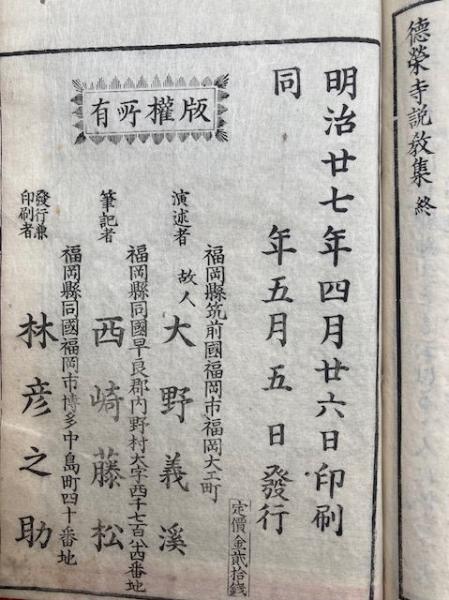 德榮寺說敎集 終
明治廿七年四月廿六日印刷
同 年五月五日發行
定價金貳拾錢
版權所有
福岡縣筑前國福岡市福岡大工町
演述者 故人 大野義溪
福岡縣同國早良郡內野村大字西千七百廿四番地
筆記者 西崎藤松
福岡縣同國福岡市博多中島町四十番地
發行兼印刷者 林彥之助